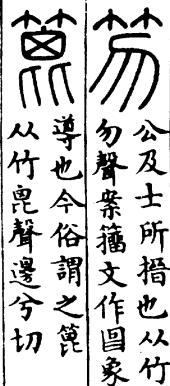 笏
公及士所搢也从竹
勿聲案籒文作象
篦
導也今俗謂之篦
从竹毘聲邊兮切